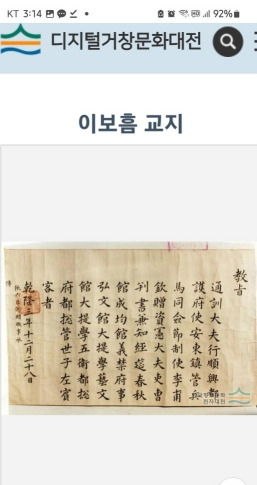 KT 3:14
92%
디지털거창문화대전
이보흠 교지
教旨
通訓大夫行順興都
護府使安東鎮管兵
馬同僉節制使李甫
欽贈資憲大夫吏曹
判書兼知經筵春秋
館成均館義禁府事
弘文館大提學藝文
館大提學五衛都摠
府都摠管世子左賓
客者
乾隆三年十二月二十八日